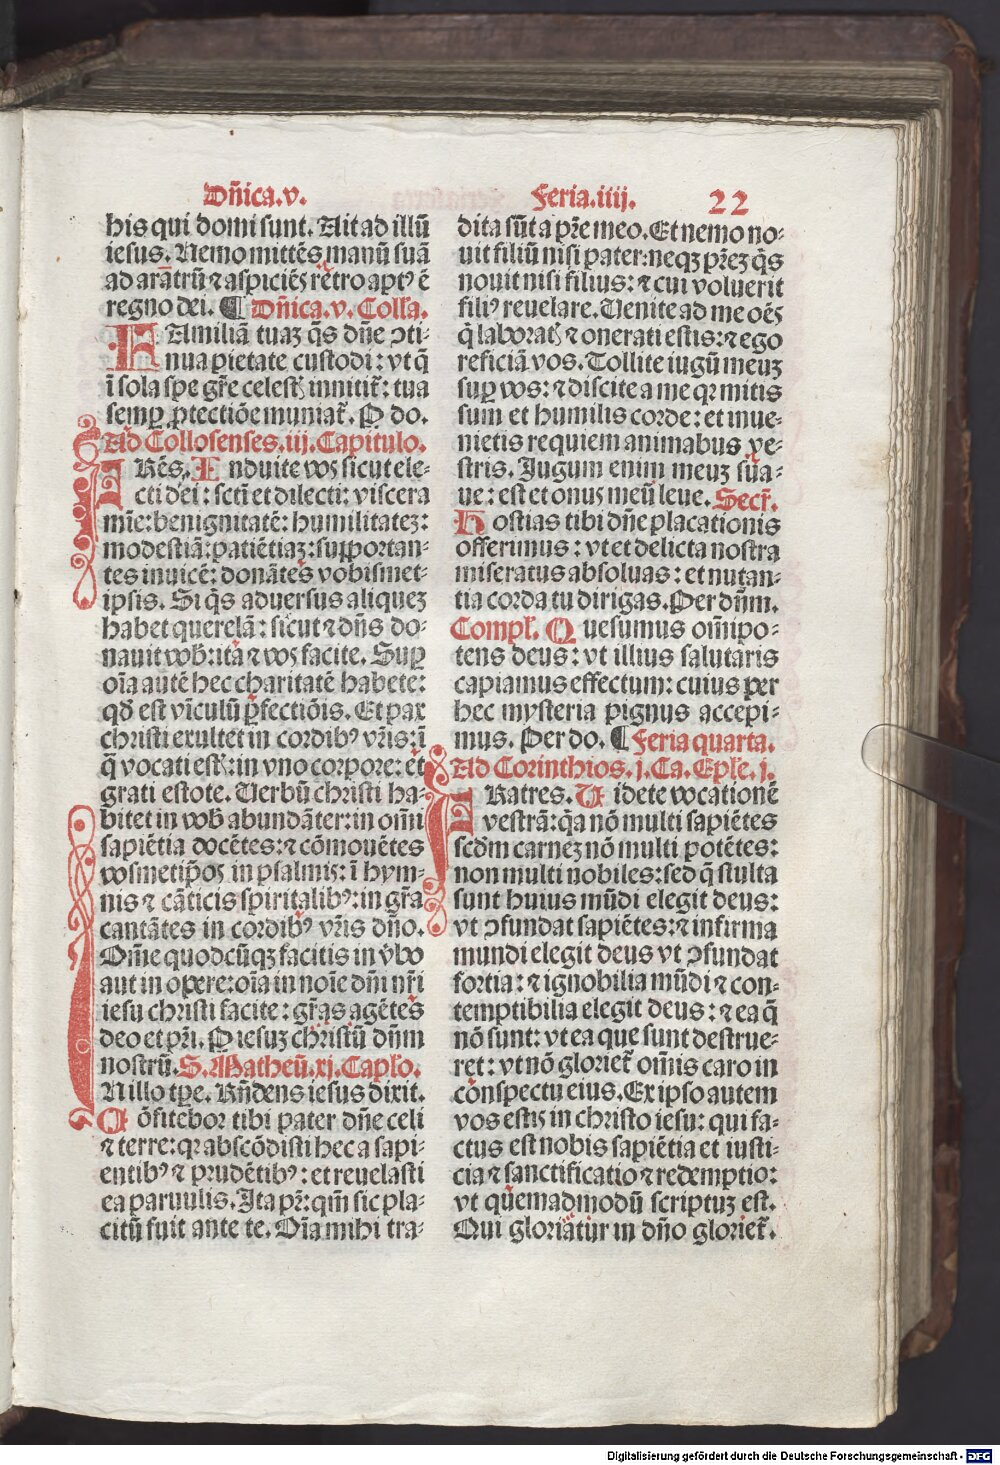 Dñica.v.
Feria.iiij. 22
his qui domi sunt. Ait ad illū
iesus. Nemo mittēs manū suā
ad aratrū ⁊ aspiciēs retro aptꝰ ē
regno dei. ¶ Dñica.v. Colla.
FAmiliā tuaꝫ q̄s dñe ↄti-
nua pietate custodi: vt q̄
ī sola spe gr̄e celestꝭ innitit̄: tua
semꝑ ꝓtectiōe muniat̄. P do.
Ad Collosenses.iij.Capitulo.
FRēs. Induite vos sicut ele-
cti dei: scti et dilecti: viscera
mīe: benignitatē: humilitateꝫ:
modestiā: patiētiaꝫ: supportan-
tes inuicē: donātes vobismet-
ipsis. Si q̄s aduersus aliqueꝫ
habet querelā: sicut ⁊ dñs do-
nauit vob̄: ita ⁊ vos facite. Suꝑ
oīa autē hec charitatē habete:
qd̄ est vīculū ꝑfectiōis. Et pax
christi exultet in cordibꝰ vr̄is: ī
q̄ vocati estꝭ: in vno corpore: et
grati estote. Verbū christi ha-
bitet in vob̄ abundāter: in om̄i
sapiētia docētes: ⁊ cōmouētes
vosmetip̄os in psalmis: ī hym-
nis ⁊ cāticis spiritalibꝰ: in gr̄a
cantātes in cordibꝰ vr̄is dño.
Om̄e quodcūqꝫ facitis in v̄bo
aut in opere: oīa in noīe dñi nr̄i
iesu christi facite: gr̄as agētes
deo et pr̄i. P iesuꝫ christū dñm
nostrū. S. Matheū.xj.Caplo.
INillo tꝑe. Rñdens iesus dixit.
Cōfitebor tibi pater dñe celi
⁊ terre: qꝛ abscōdisti hec a sapi-
entibꝰ ⁊ prudētibꝰ: et reuelasti
ea paruulis. Ita pr̄: qm̄ sic pla-
citū fuit ante te. Oīa mihi tra-
dita sūt a pr̄e meo. Et nemo no-
uit filiū nisi pater: neqꝫ pr̄eꝫ q̄s
nouit nisi filius: ⁊ cui voluerit
filiꝰ reuelare. Venite ad me oēs
q̄ laboratꝭ ⁊ onerati estis: ⁊ ego
reficiā vos. Tollite iugū meuꝫ
suꝑ vos: ⁊ discite a me qꝛ mitis
sum et humilis corde: et inue-
nietis requiem animabus ve-
stris. Iugum enim meuꝫ sua-
ue: est et onus meū leue. Secr̄.
Hostias tibi dñe placationis
offerimus: vt et delicta nostra
miseratus absoluas: et nutan-
tia corda tu dirigas. Per dñm.
Compl. Quesumus om̄ipo-
tens deus: vt illius salutaris
capiamus effectum: cuius per
hec mysteria pignus accepi-
mus. Per do. ¶ Feria quarta.
Ad Corinthios.j.Ca.Eple.j.
FRatres. Videte vocationē
vestrā: q̄a nō multi sapiētes
scd̄m carneꝫ nō multi potētes:
non multi nobiles: sed q̄ stulta
sunt huius mūdi elegit deus:
vt ↄfundat sapiētes: ⁊ infirma
mundi elegit deus vt ↄfundat
fortia: ⁊ ignobilia mūdi ⁊ con-
temptibilia elegit deus: ⁊ ea q̄
nō sunt: vt ea que sunt destrue-
ret: vt nō gloriet̄ om̄is caro in
conspectu eius. Ex ipso autem
vos estis in christo iesu: qui fa-
ctus est nobis sapiētia et iusti-
cia ⁊ sanctificatio ⁊ redemptio:
vt quemadmodū scriptuꝫ est.
Qui gloriatur in dño gloriet̄.
Digitalisierung gefördert durch die Deutsche Forschungsgemeinschaft - DFG